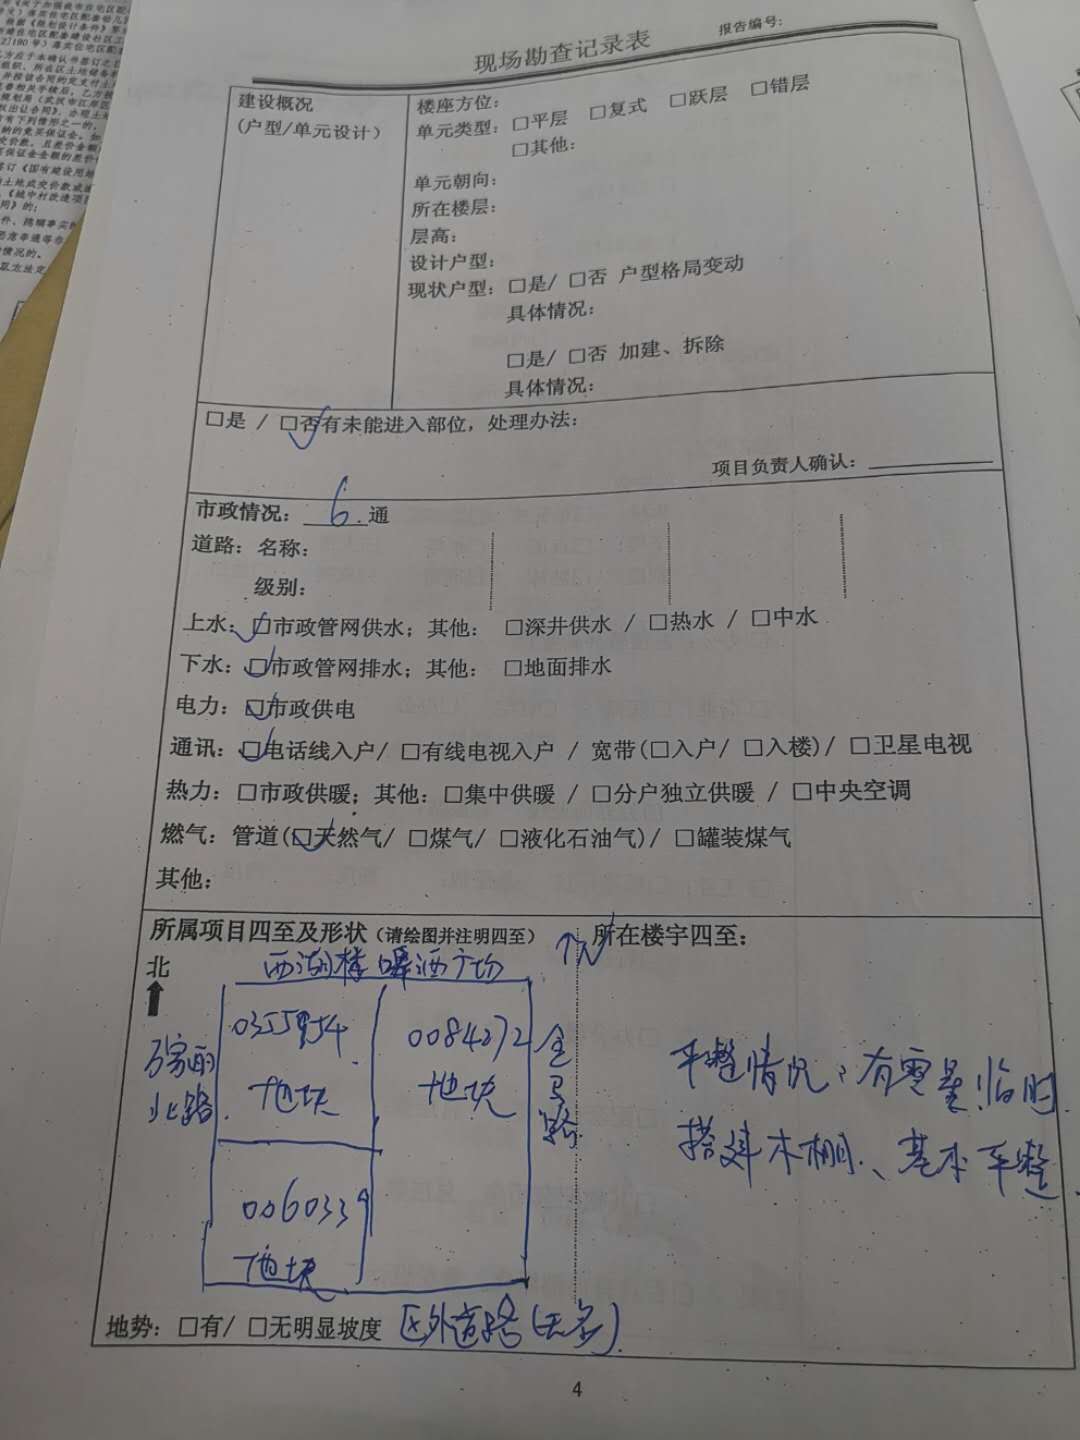 现场勘查记录表
报告编号：
建设概况
（户型/单元设计）
楼座方位：
单元类型：□平层 □复式 □跃层 □错层
□其他：
单元朝向：
所在楼层：
层高：
设计户型：
现状户型：□是/ □否 户型格局变动
具体情况：
□是/ □否 加建、拆除
具体情况：
□是 / □否有未能进入部位，处理办法：
项目负责人确认：
市政情况：6 通
道路：名称：
级别：
上水：□市政管网供水；其他： □深井供水 / □热水 / □中水
下水：□市政管网排水；其他： □地面排水
电力：□市政供电
通讯：□电话线入户/ □有线电视入户 / 宽带(□入户/ □入楼)/ □卫星电视
热力：□市政供暖；其他：□集中供暖 / □分户独立供暖 / □中央空调
燃气：管道(□天然气/ □煤气/ □液化石油气)/ □罐装煤气
其他；
所属项目四至及形状（请绘图并注明四至）
所在楼宇四至：
北
↑N
西湖楼啤酒广场
0355954
地块
0084272
地块
北路
金马路
0060339
地块
平整情况：有零星临时
搭建木棚、基本平整.
地势：□有/ □无明显坡度
区外道路(无名).
4